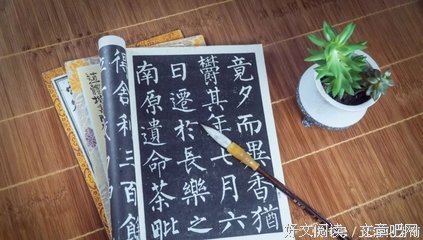 竟夕而異香猶
鬱其年七月六
日遷於長樂之
南原遺命茶毗
得舍利三百餘
好文阅读/文章吧网